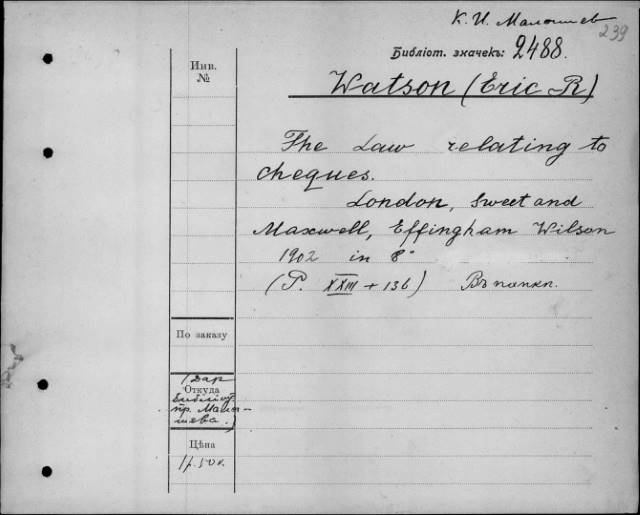 К. И. Малышев
239
Библіот. значекъ: 2488.
Инв.
№
Watson (Eric R)
The Law relating to
cheques.
London, Sweet and
Maxwell, Effingham Wilson
1902 in 8°
(P. XXIII + 136) Въ папкп.
По заказу
(Дар
Откуда
пр. Малы-
шева.)
Цѣна
1р. 50к.